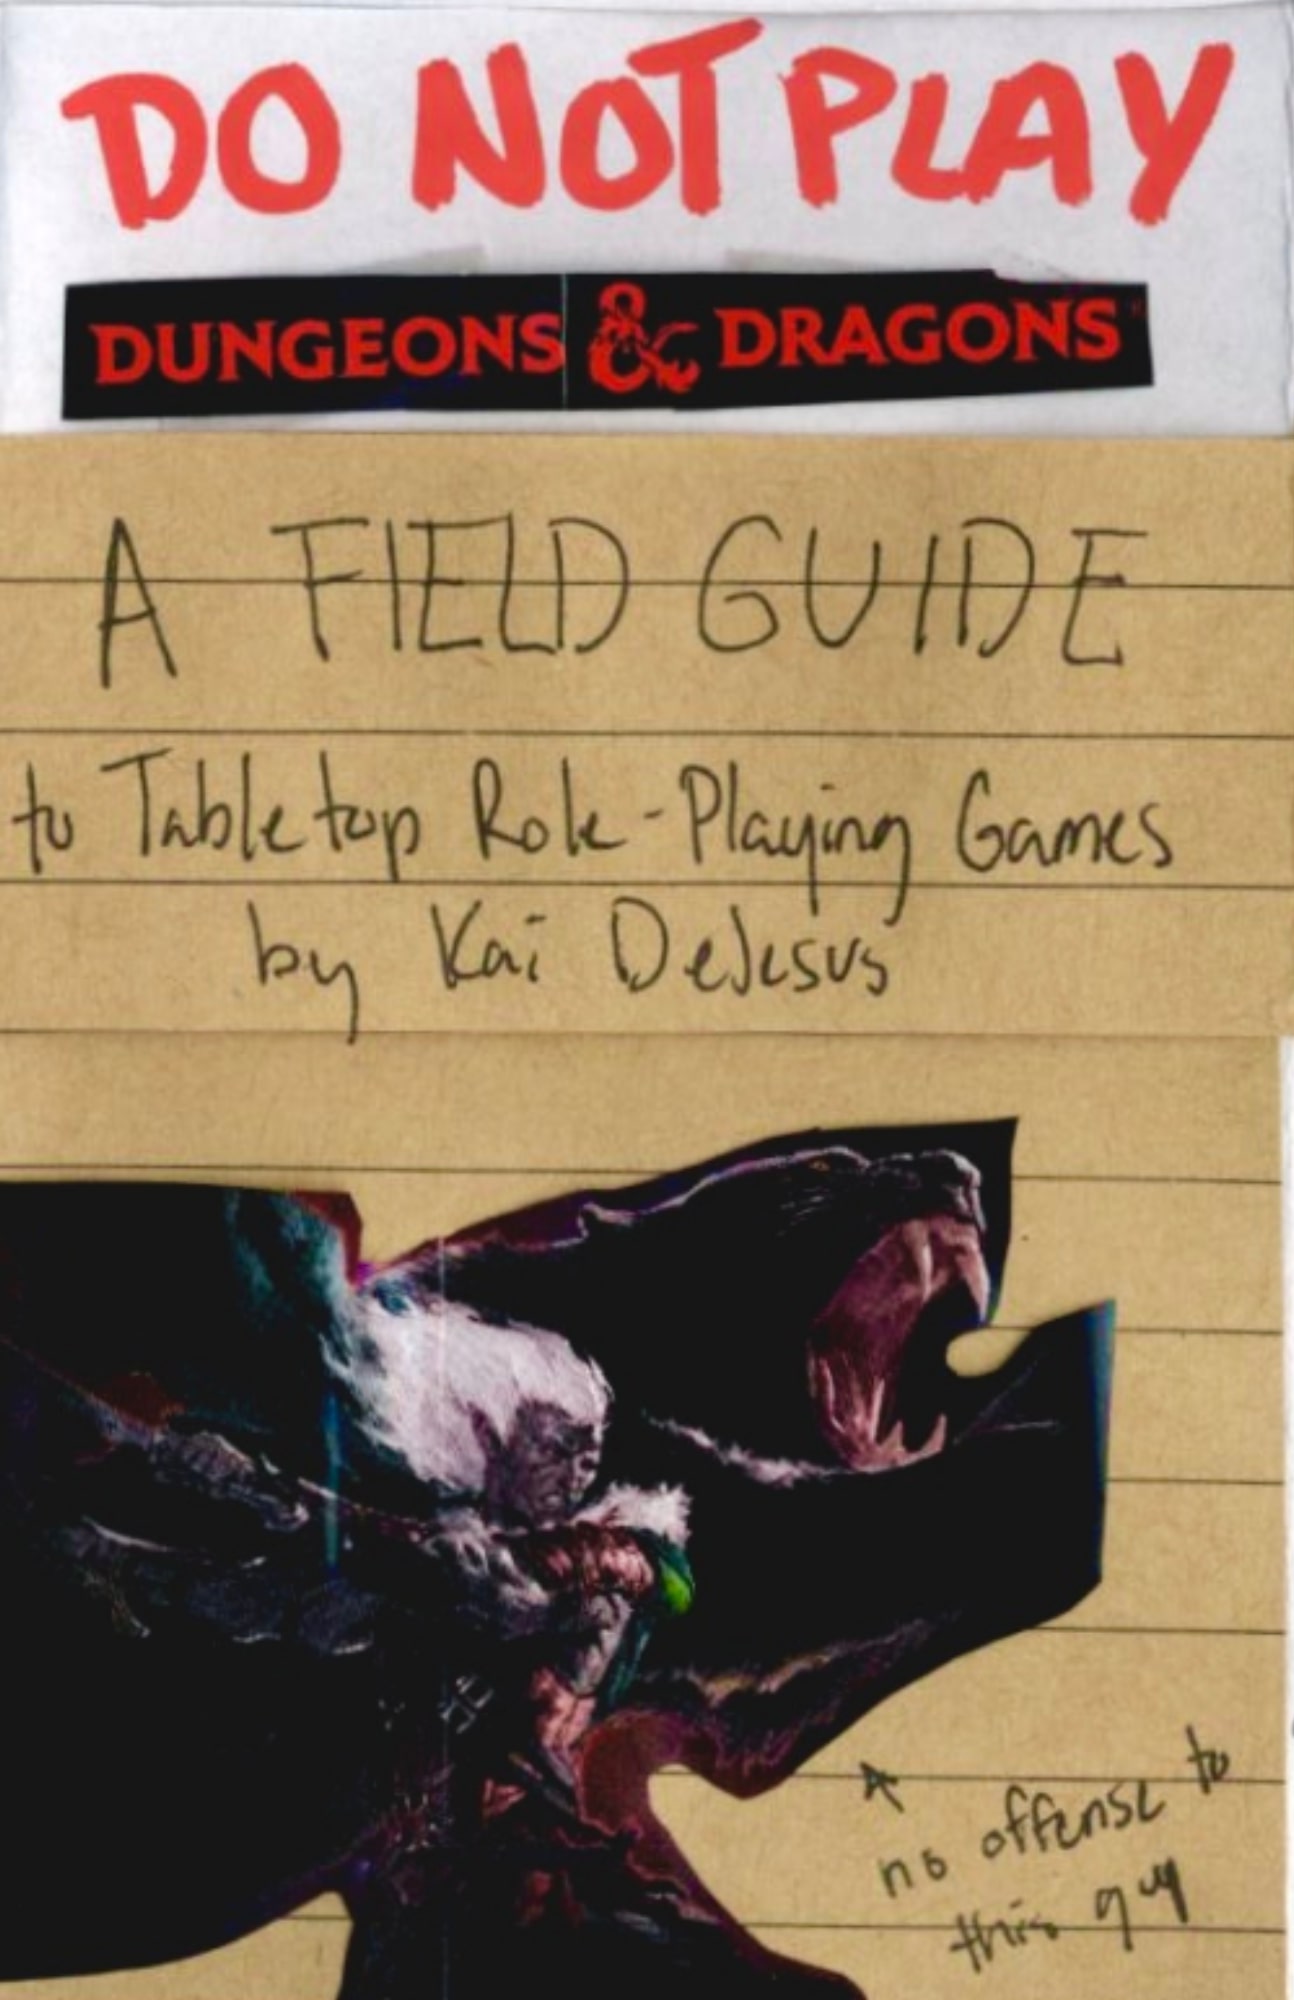 DO NOT PLAY
DUNGEONS & DRAGONS
A FIELD GUIDE
to Tabletop Role-Playing Games
by Kai DeJesus
no offense to
this guy